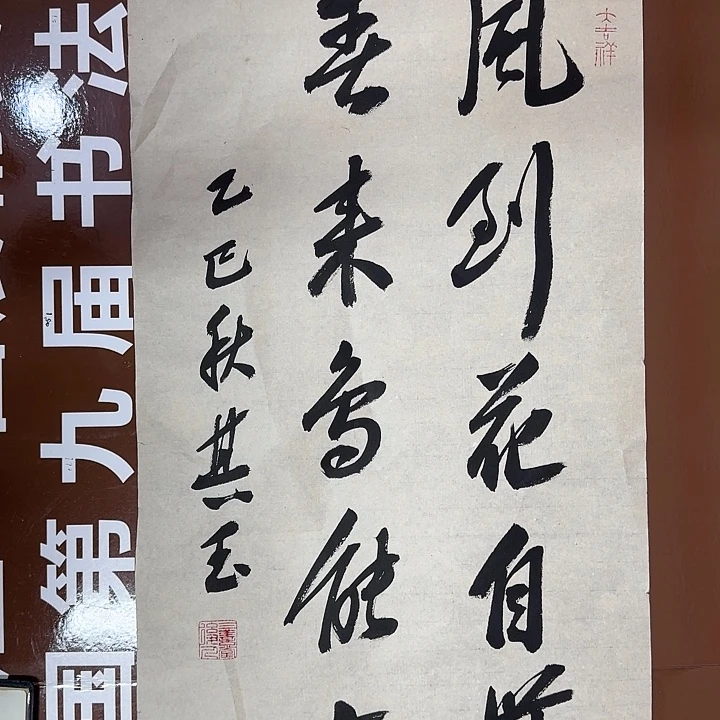 大吉祥
风到花自
春来鸟能
乙巳秋其玉
国第九届书法